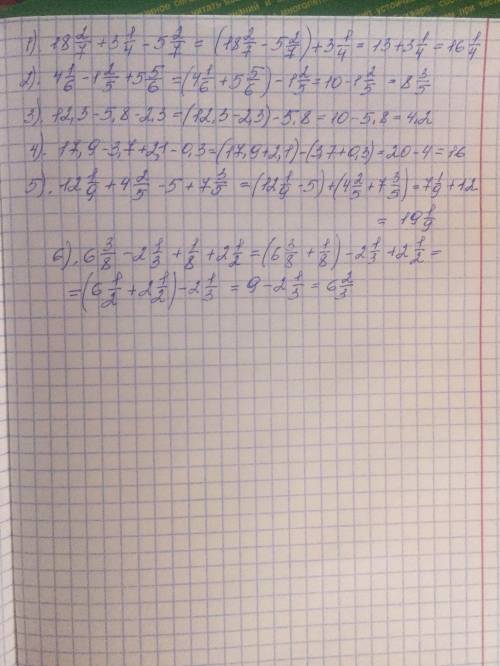 1). 18 2/7 + 3 1/4 - 5 2/7 = (18 2/7 - 5 2/7) + 3 1/4 = 13 + 3 1/4 = 16 1/4
2). 4 1/6 - 1 2/5 + 5 5/6 = (4 1/6 + 5 5/6) - 1 2/5 = 10 - 1 2/5 = 8 3/5
3). 12,3 - 5,8 - 2,3 = (12,3 - 2,3) - 5,8 = 10 - 5,8 = 4,2
4). 17,9 - 3,7 + 2,1 - 0,3 = (17,9 + 2,1) - (3,7 + 0,3) = 20 - 4 = 16
5). 12 1/9 + 4 2/5 - 5 + 7 3/5 = (12 1/9 - 5) + (4 2/5 + 7 3/5) = 7 1/9 + 12
= 19 1/9
6). 6 3/8 - 2 1/3 + 1/8 + 2 1/2 = (6 3/8 + 1/8) - 2 1/3 + 2 1/2 =
= (6 1/2 + 2 1/2) - 2 1/3 = 9 - 2 1/3 = 6 2/3